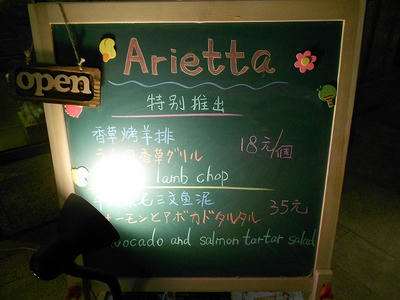 Arietta
open
特别推出
香草烤羊排
18元/個
香草グリル
lamb chop
三文鱼泥
35元
サーモンとアボカドタルタル
avocado and salmon tartar salad